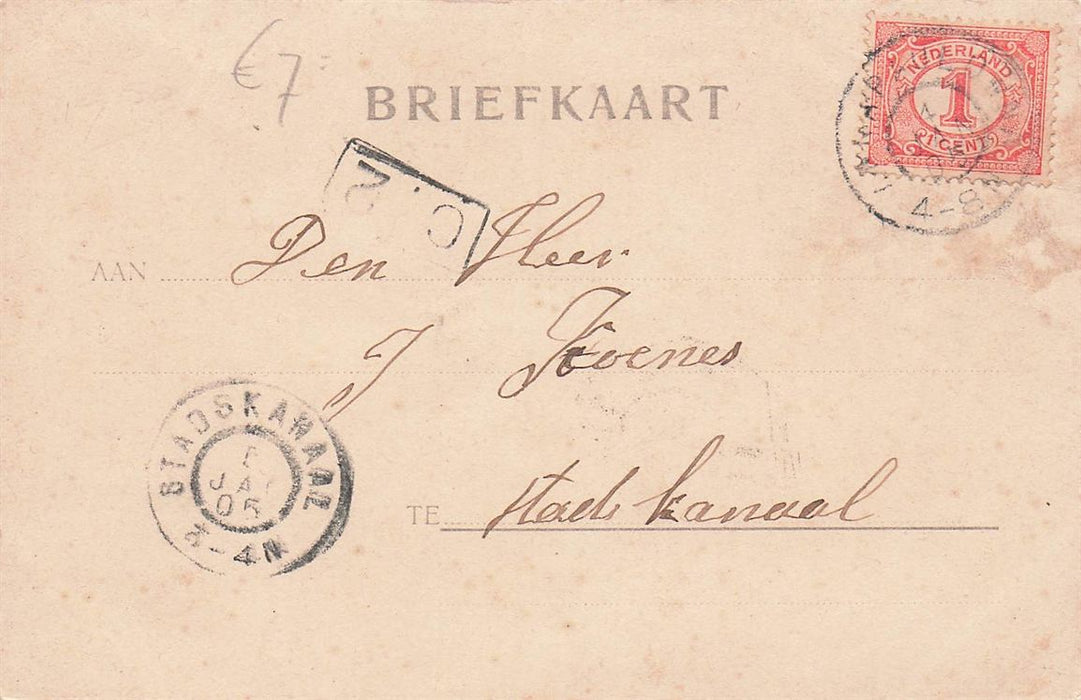 €7=
BRIEFKAART
NEDERLAND
1
CENT
4-8
AAN Den Heer
J Koenes
STADSKANAAL
JA
05
4N
TE Stadskanaal